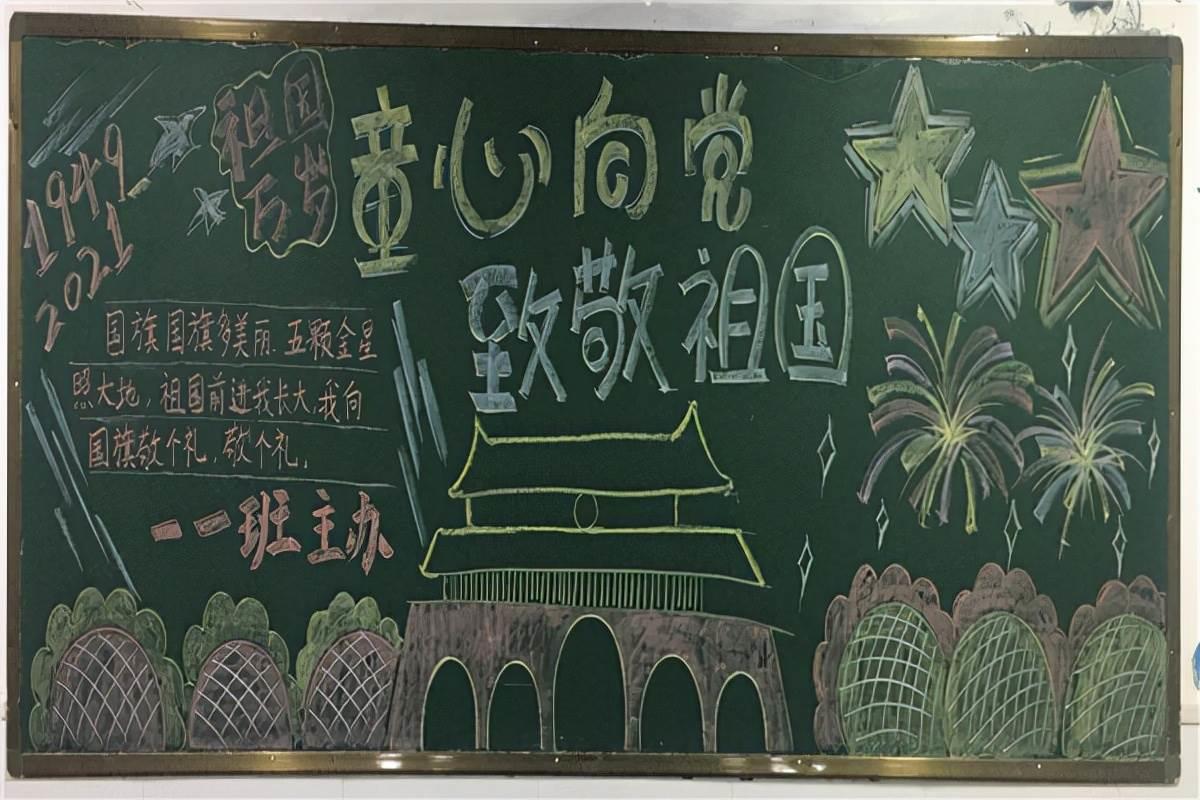 1949
2021
祖国
万岁
童心向党
致敬祖国
国旗国旗多美丽.五颗金星
照大地，祖国前进我长大，我向
国旗敬个礼，敬个礼，
一一班主办